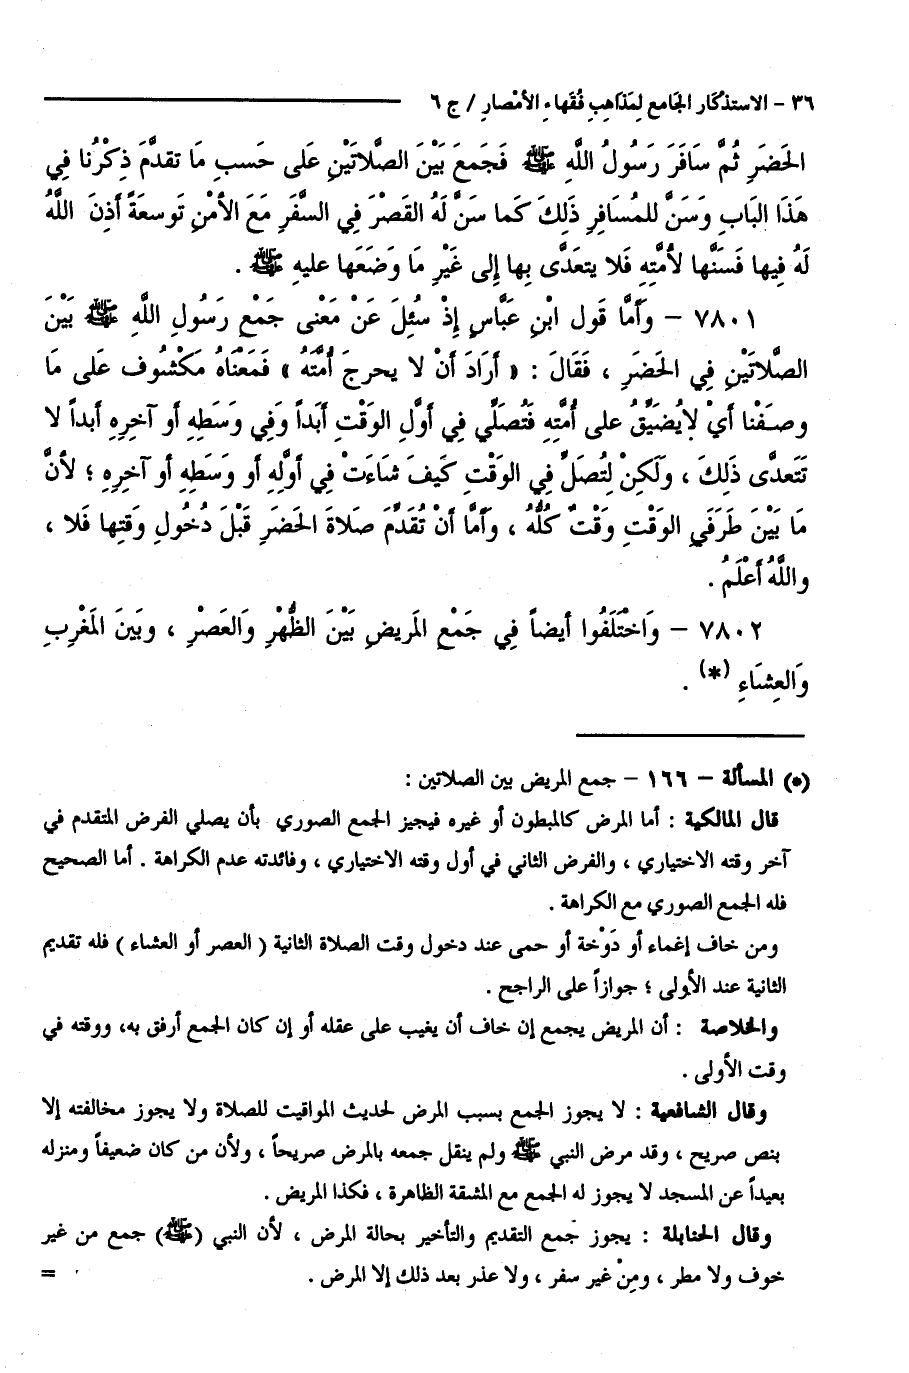 ٣٦ - الاستذكار الجامع لمذاهب فقهاء الأمصار / ج ٦
الحَضَرِ ثُمَّ سَافَرَ رَسُولُ اللَّهِ ﷺ فَجَمعَ بَيْنَ الصَّلاتَيْنِ عَلَى حَسَبِ مَا تقدَّمَ ذِكْرُنا فِي
هَذَا البَابِ وَسَنَّ للمُسَافِرِ ذَلِكَ كَما سَنَّ لَهُ القَصْرَ فِي السَّفَرِ مَعَ الأمْنِ تَوسعَةً أَذِنَ اللَّهُ
لَهُ فِيها فَسَنَّها لأُمَّتِهِ فَلا يتعَدَّى بِها إِلى غَيْرِ مَا وَضَعَها عليهِ ﷺ .
٧٨٠١ - وَأَمَّا قَول ابْنِ عَبَّاسٍ إِذْ سُئِلَ عَنْ مَعْنى جَمْعِ رَسُولِ اللَّهِ ﷺ بَيْنَ
الصَّلاتَيْنِ فِي الحَضَرِ ، فَقَالَ : « أَرَادَ أَنْ لا يحرجَ أُمَّتَهُ » فَمَعْنَاهُ مَكْشُوف عَلى مَا
وصَفْنا أَيْ لايُضَيِّقُ على أُمَّتِهِ فَتُصَلِّي فِي أَوَّلِ الوَقْتِ أَبَداً وَفِي وَسَطِهِ أَو آخِرِهِ أَبداً لا
تَتَعدَّى ذَلِكَ ، ولَكِنْ لِتُصَلِّ فِي الوَقْتِ كَيفَ شَاءَتْ فِي أَوَّلِهِ أَو وَسَطِهِ أَو آخرِهِ ؛ لأنَّ
مَا بَيْنَ طَرَفَيِ الوَقْتِ وَقْتٌ كُلُّهُ ، وَأَمَّا أَنْ تُقَدَّمَ صَلاةَ الحَضَرِ قَبْلَ دُخُولِ وَقتِها فَلا ،
واللَّهُ أَعْلَمُ .
٧٨٠٢ - وَاخْتَلَفُوا أيضاً فِي جَمْعِ المَريضِ بَيْنَ الظُّهْرِ وَالعَصْرِ ، وبَينَ المَغْرِبِ
وَالعِشَاءِ (*) .
(*) المسألة - ١٦٦ - جمع المريض بين الصلاتين :
قال المالكية : أما المرض كالمبطون أو غيره فيجيز الجمع الصوري بأن يصلي الفرض المتقدم في
آخر وقته الاختياري ، والفرض الثاني في أول وقته الاختياري ، وفائدته عدم الكراهة . أما الصحيح
فله الجمع الصوري مع الكراهة .
ومن خاف إغماء أو دَوْخة أو حمى عند دخول وقت الصلاة الثانية ( العصر أو العشاء ) فله تقديم
الثانية عند الأولى ؛ جوازاً على الراجح .
والخلاصة : أن المريض يجمع إن خاف أن يغيب على عقله أو إن كان الجمع أرفق به، ووقته في
وقت الأولى .
وقال الشافعية : لا يجوز الجمع بسبب المرض لحديث المواقيت للصلاة ولا يجوز مخالفته إلا
بنص صريح ، وقد مرض النبي ﷺ ولم ينقل جمعه بالمرض صريحاً ، ولأن من كان ضعيفاً ومنزله
بعيداً عن المسجد لا يجوز له الجمع مع المشقة الظاهرة ، فكذا المريض .
وقال الحنابلة : يجوز جمع التقديم والتأخير بحالة المرض ، لأن النبي (ﷺ) جمع من غير
خوف ولا مطر ، ومِنْ غير سفر ، ولا عذر بعد ذلك إلا المرض . =